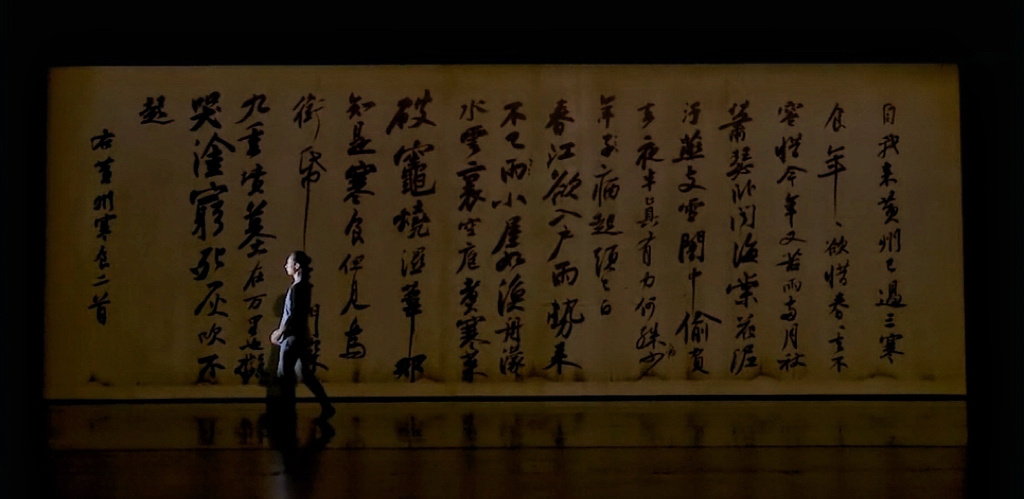 自我來黃州已過三寒
食年〻欲惜春〻去不
容惜今年又苦雨兩月秋
蕭瑟卧聞海棠花泥
汙燕支雪闇中偷負
去夜半真有力何殊少
年子病起須已白
春江欲入戶雨勢來
不已雨小屋如漁舟濛
水雲裏空庖煮寒菜
破竈燒濕葦那
知是寒食但見烏
銜帋門深
九重墳墓在万里也擬
哭塗窮死灰吹不
起
右黃州寒食二首